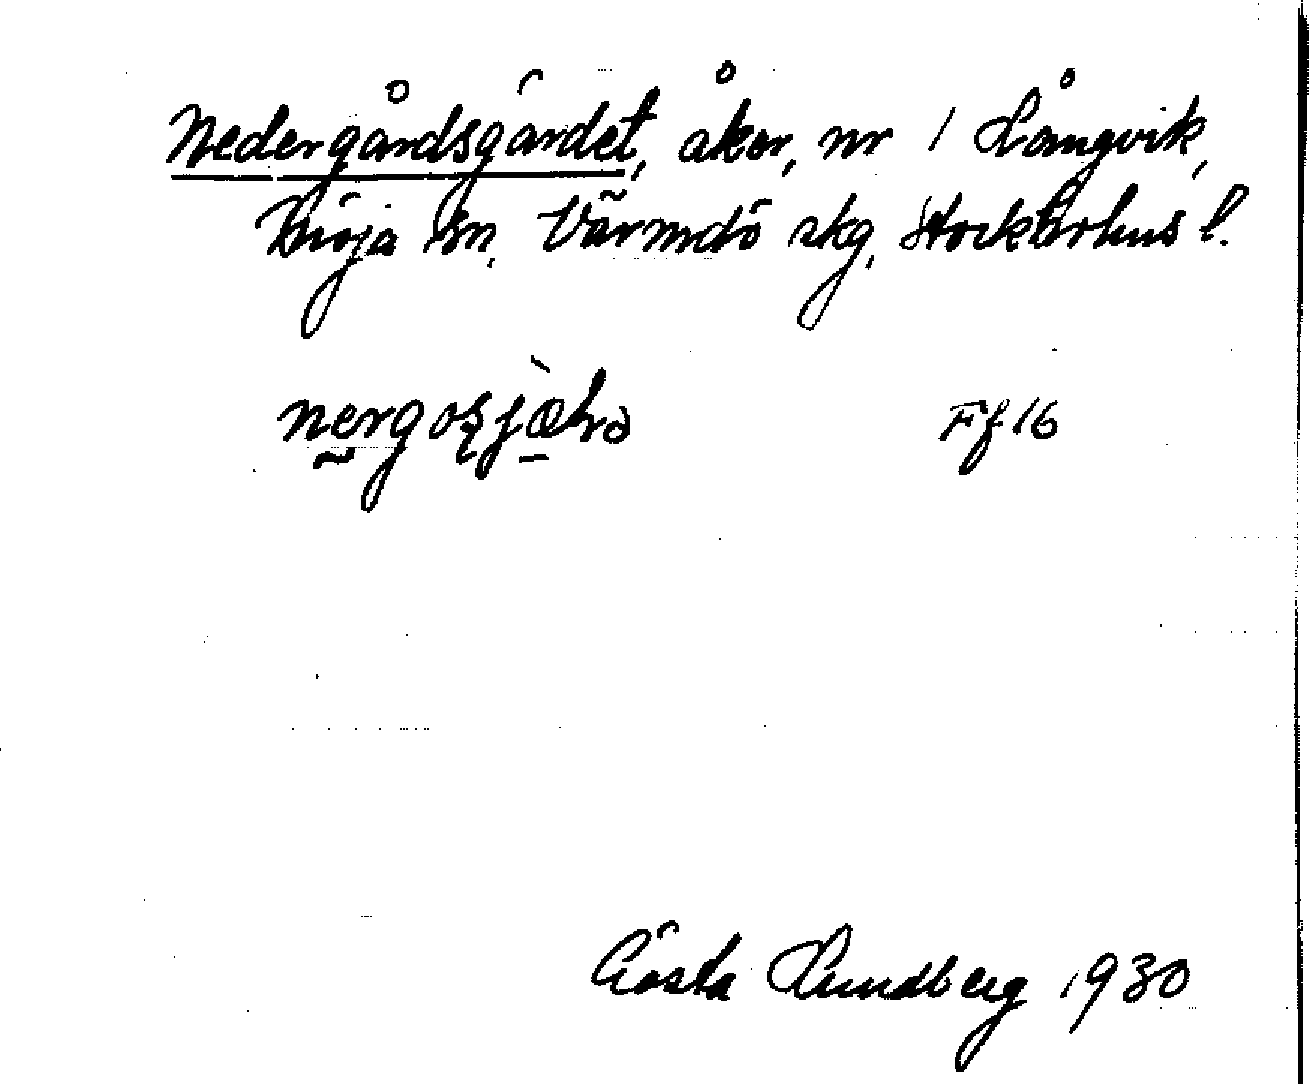 Nedergårdsgärdet, åker, nr 1 Långvik,
Djurö sn, Värmdö skg, Stockholms l.
Ff 16
Gösta Lundberg 1930